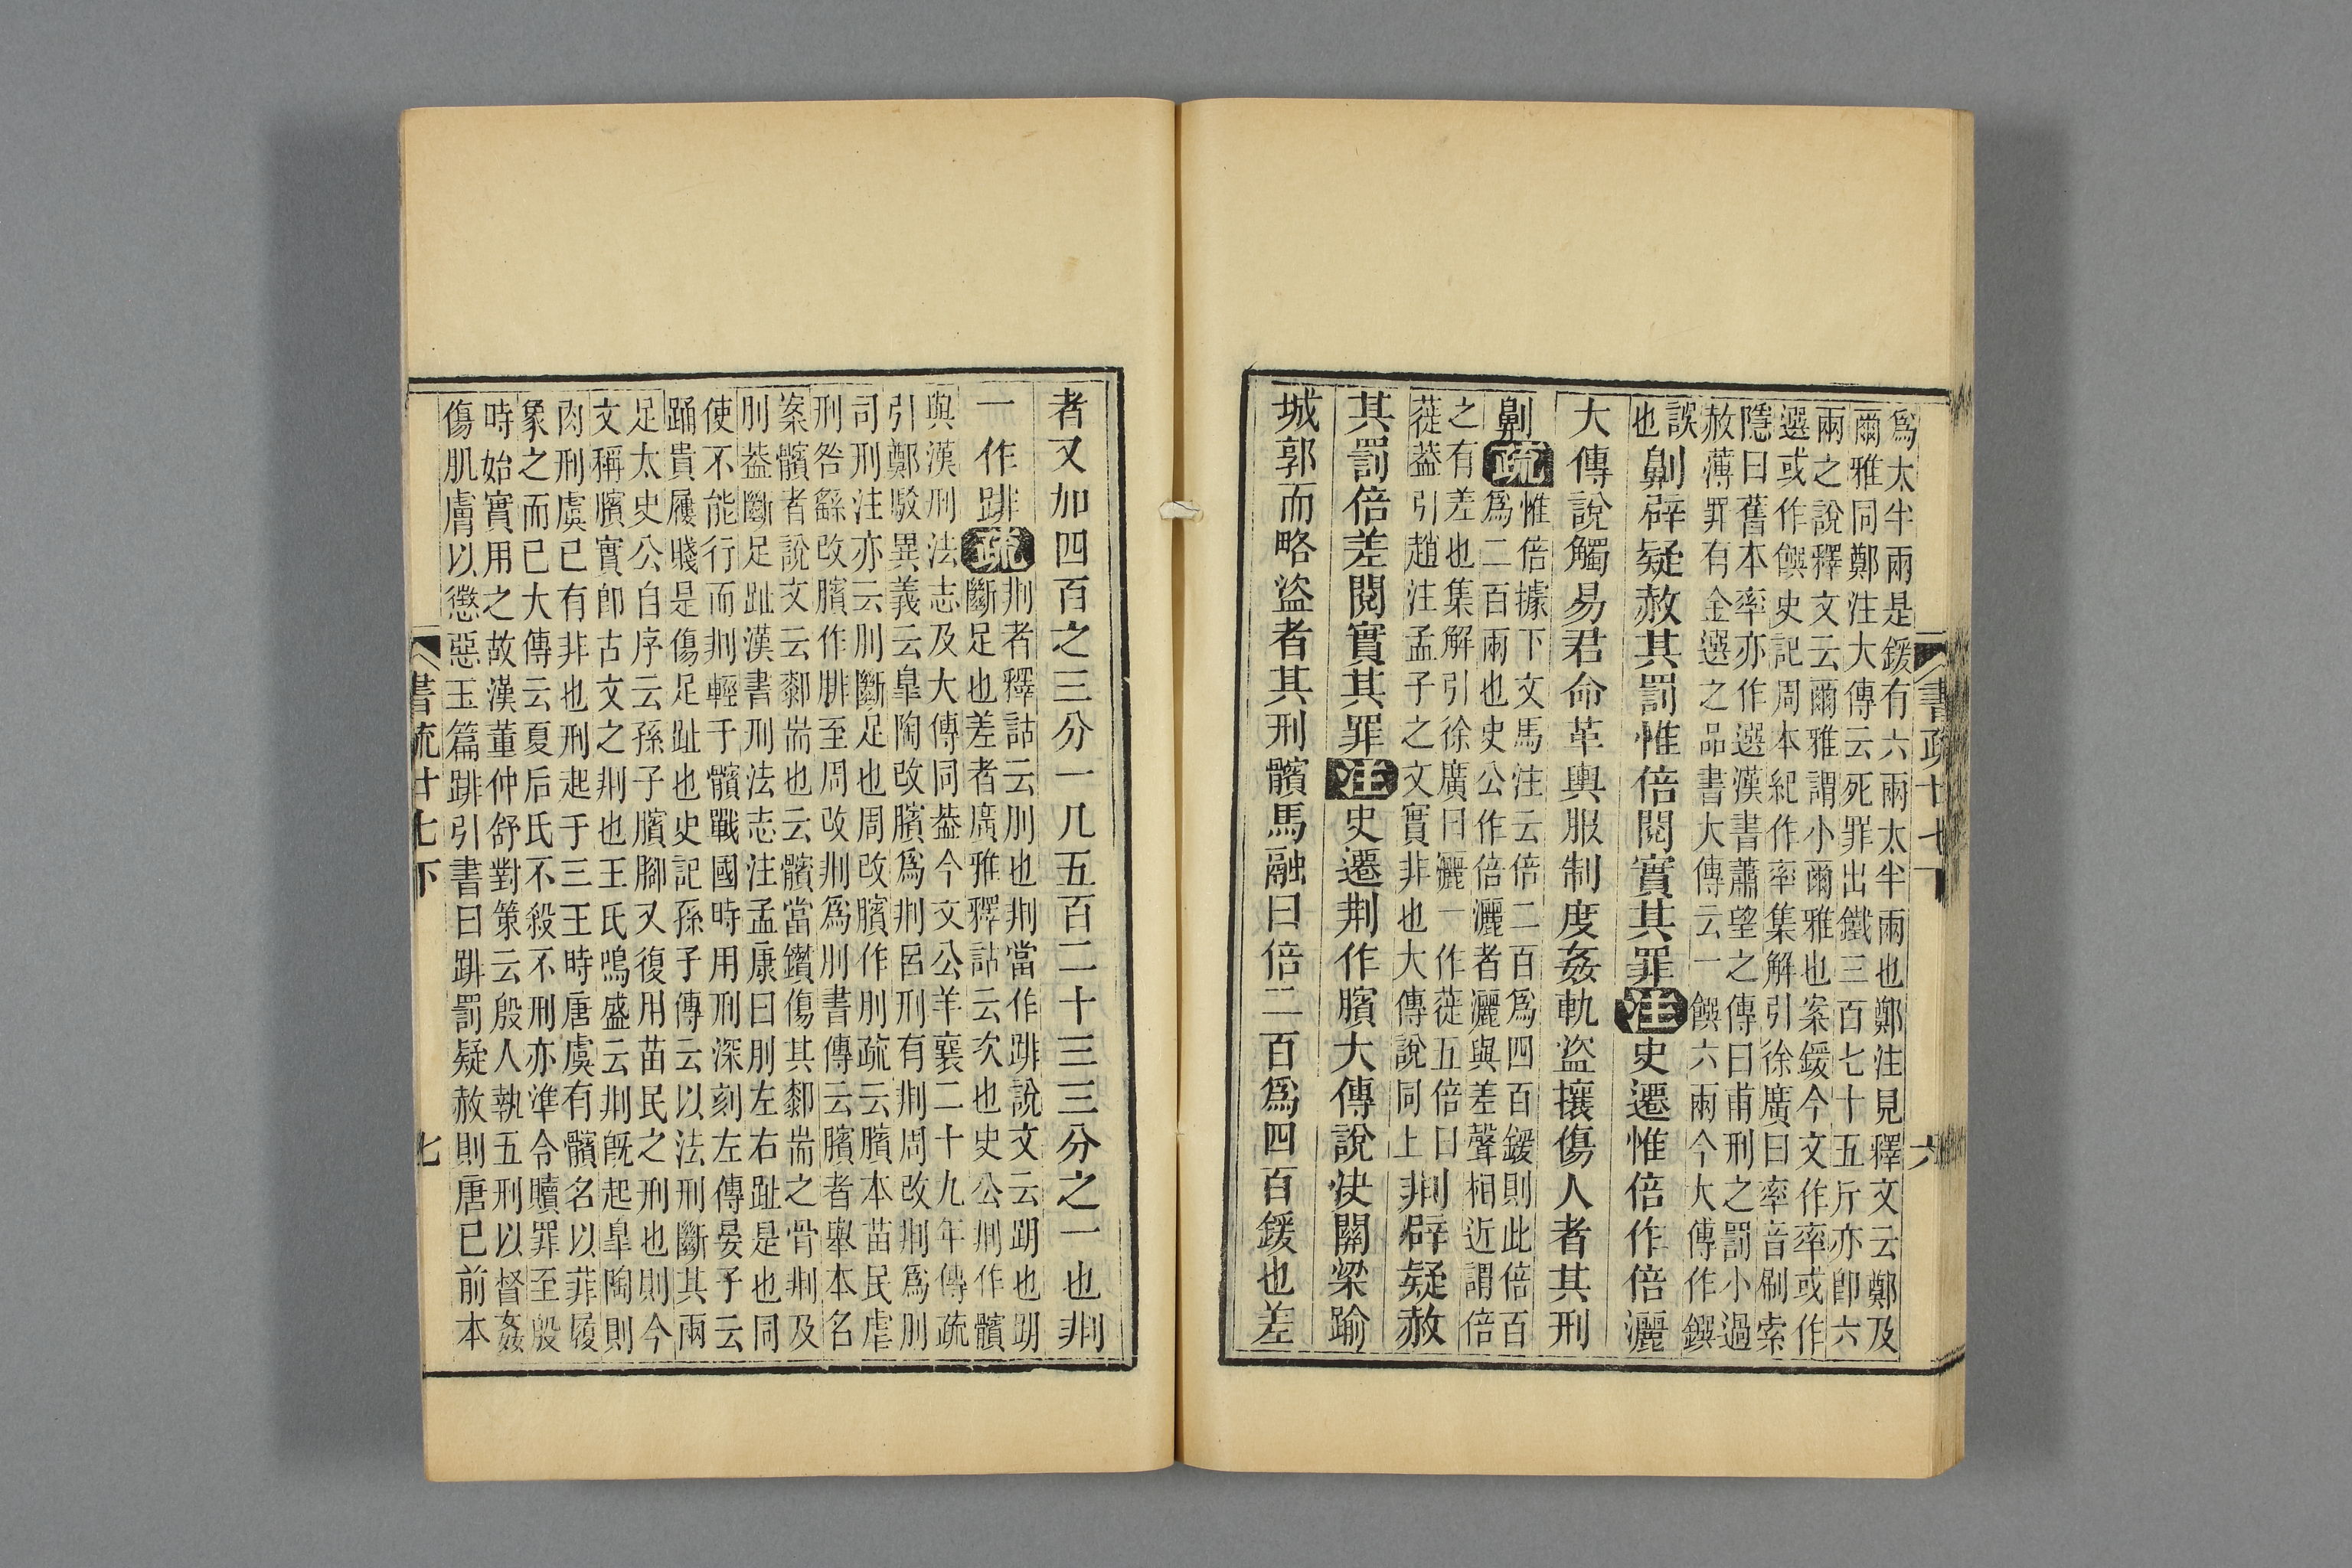 爲太半兩是鍰有六兩太半兩也鄭注見釋文云鄭及
爾雅同鄭注大傳云死罪出鐵三百七十五斤亦卽六
兩之說釋文云爾雅謂小爾雅也案鍰今文作率或作
選或作饌史記周本紀作率集解引徐廣曰率音刷索
隱曰舊本率亦作選漢書蕭望之傳曰甫刑之罰小過
赦薄罪有金選之品書大傳云一饌六兩今大傳作鐉
誤
也
劓辟疑赦其罰惟倍閱實其罪注史遷惟倍作倍灑
大傳說觸易君命革輿服制度姦軌盜攘傷人者其刑
劓疏
惟倍據下文馬注云倍二百爲四百鍰則此倍百
爲二百兩也史公作倍灑者灑與差聲相近謂倍
之有差也集解引徐廣曰灑一作蓰五倍曰
蓰葢引趙注孟子之文實非也大傳說同上
剕辟疑赦
其罰倍差閱實其罪注史遷剕作臏大傳說決關梁踰
城郭而略盜者其刑髕馬融曰倍二百爲四百鍰也差
書疏廿七下
六
者又加四百之三分一凡五百二十三三分之一也剕
一作跸疏
剕者釋詁云刖也剕當作跸說文云跀也跀
斷足也差者廣雅釋詁云次也史公剕作髕
與漢刑法志及大傳同葢今文公羊襄二十九年傳疏
引鄭駁異義云皐陶改臏爲剕呂刑有剕周改剕爲刖
司刑注亦云刖斷足也周改臏作刖疏云臏本苗民虐
刑咎繇改臏作腓至周改剕爲刖書傳云臏者舉本名
案髕者說文云厀耑也云髕當鑽傷其厀耑之骨剕及
刖葢斷足趾漢書刑法志注孟康曰刖左右趾是也同
使不能行而剕輕于髕戰國時用刑深刻左傳晏子云
踊貴屨賤是傷足趾也史記孫子傳云以法刑斷其兩
足太史公自序云孫子臏腳又復用苗民之刑也則今
文稱臏實卽古文之剕也王氏鳴盛云剕旣起皐陶則
肉刑虞已有非也刑起于三王時唐虞有髕名以菲履
象之而已大傳云夏后氏不殺不刑亦準令贖罪至殷
時始實用之故漢董仲舒對策云殷人執五刑以督姦
傷肌膚以懲惡玉篇跸引書曰跸罰疑赦則唐已前本
書疏廿七下
七